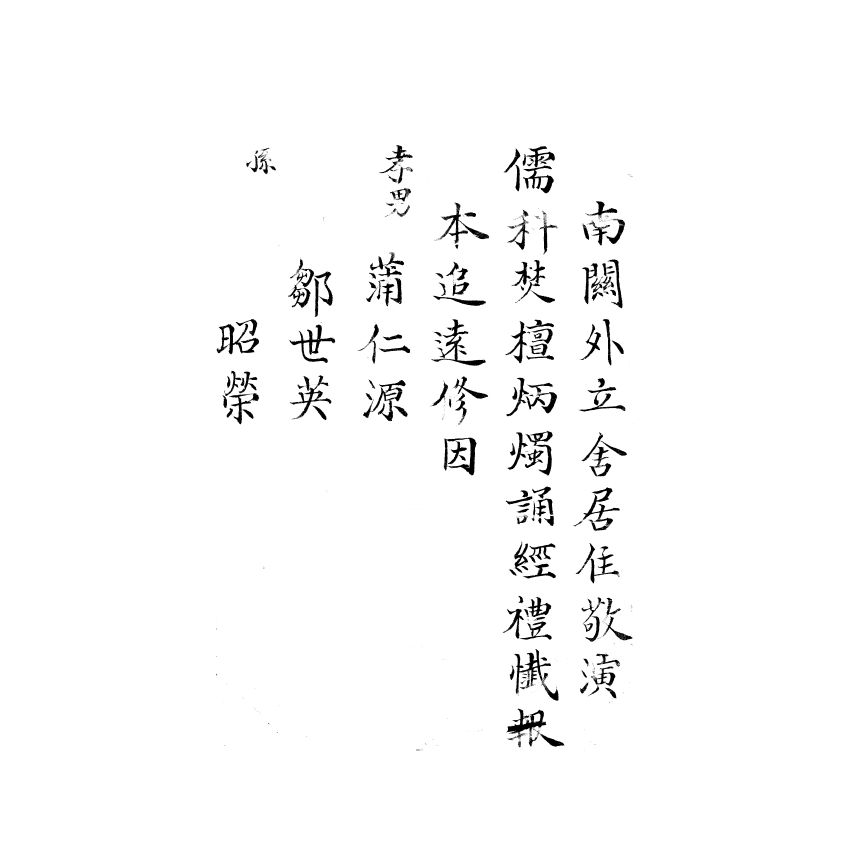 南關外立舍居住敬演
儒科焚檀炳燭誦經禮懺報
本追遠修因
孝男 蒲仁源
鄒世英
孫 昭榮